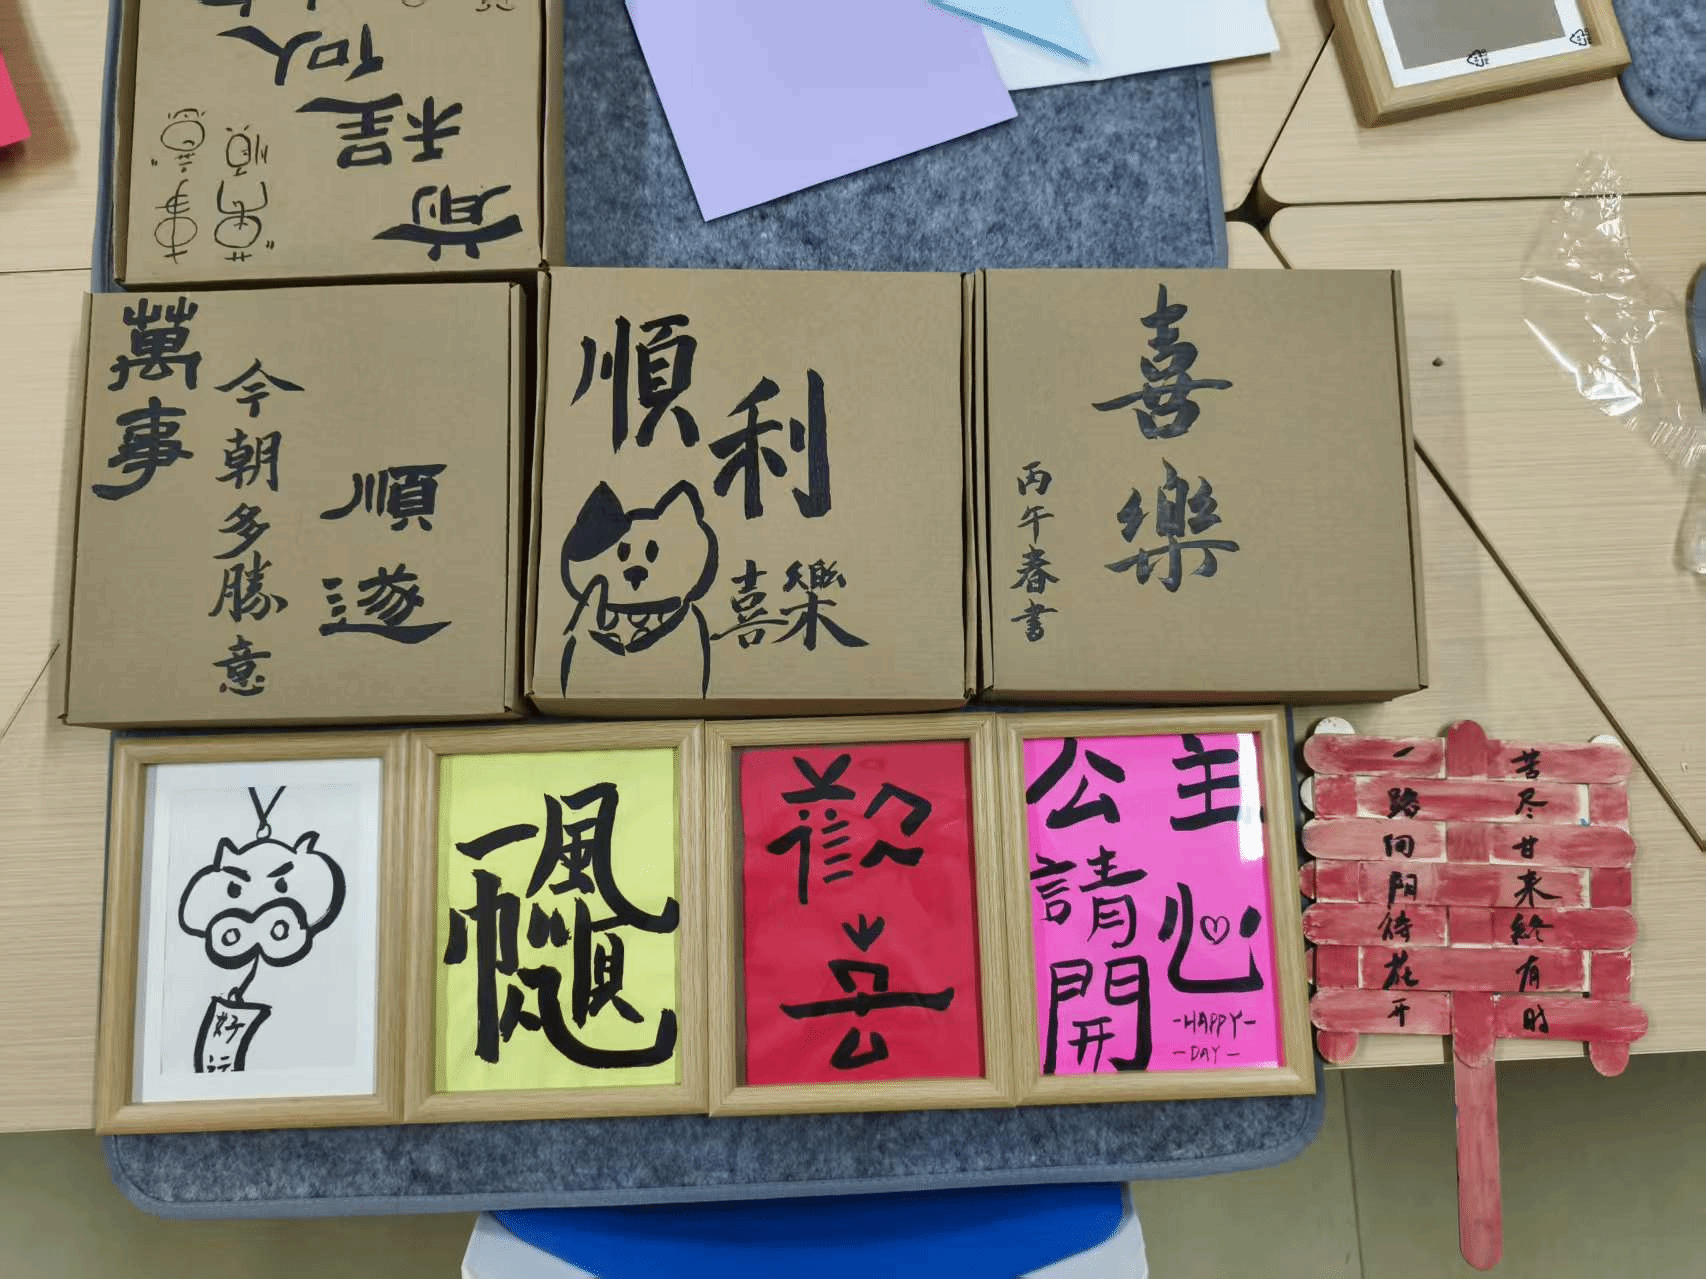 前程似
萬事
今朝多勝意
順遂
順利
喜樂
喜樂
丙午春書
好运
一帆風順
歡喜
公主
請開心
-HAPPY-
-DAY-
苦尽甘来終有时
一路向阳待花开